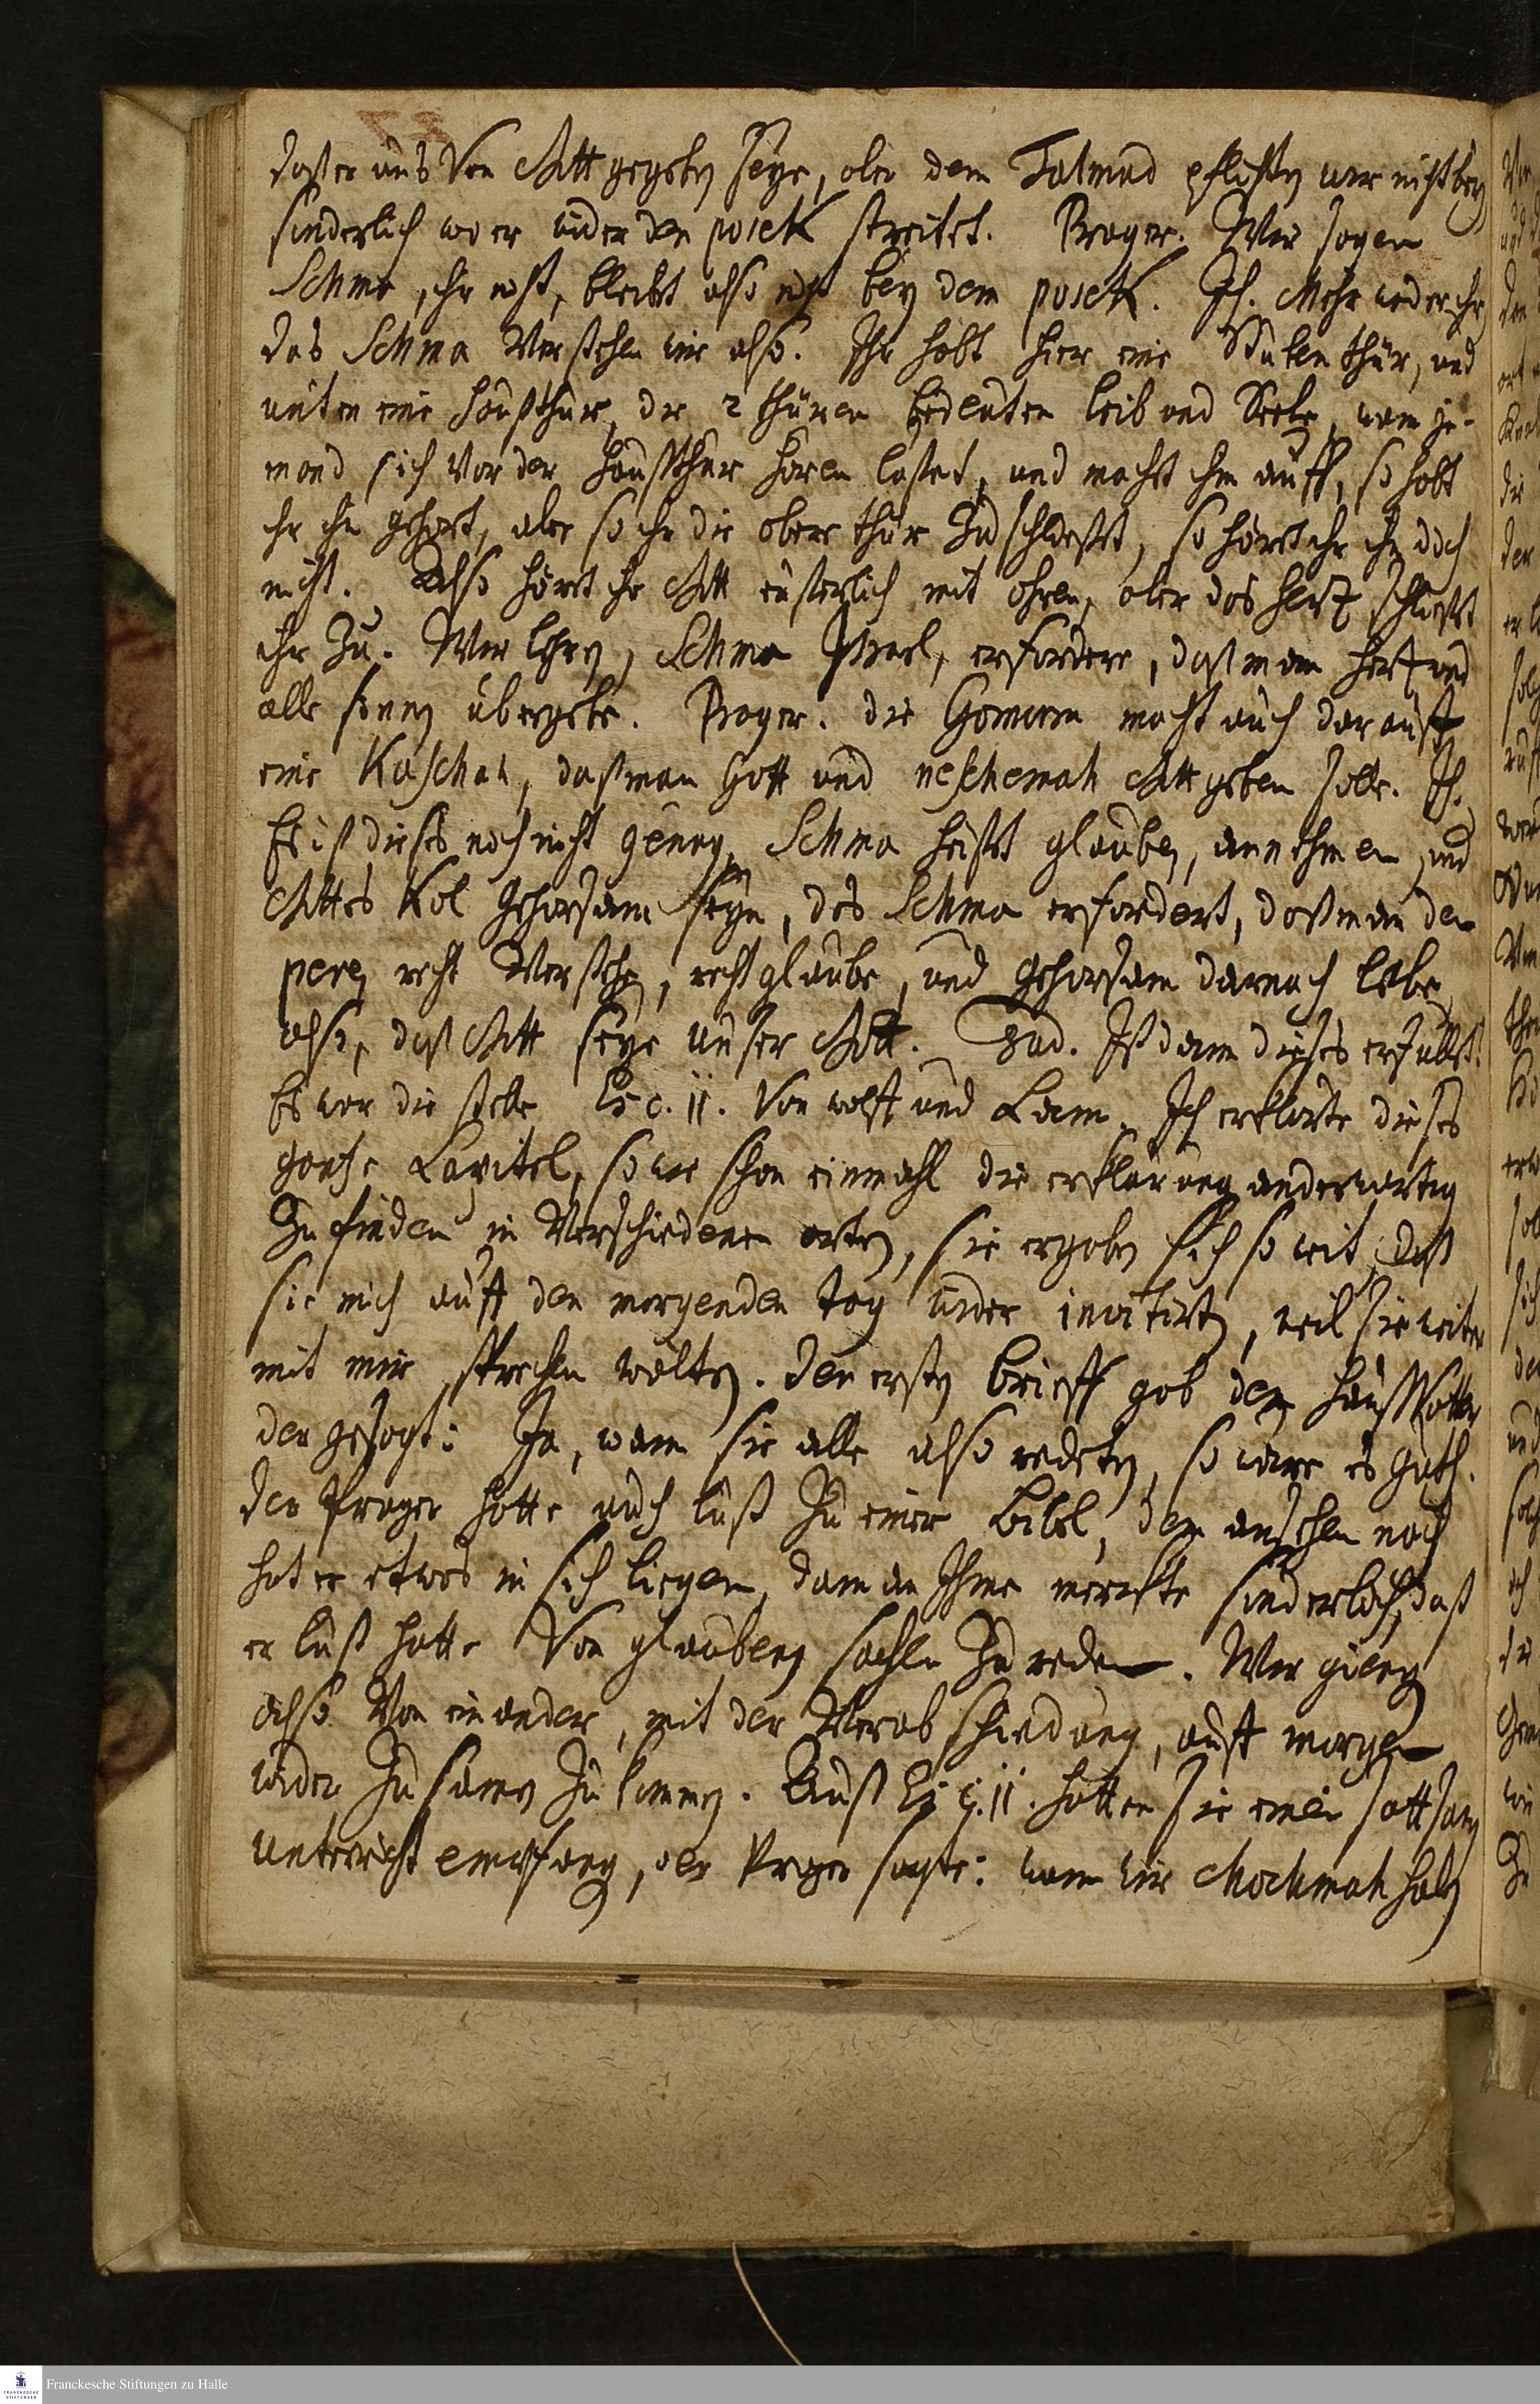 daß er uns von Gott gegeben seye, aber dem Talmud pflichten wir nicht bey
sonderlich wo er wider den posek streitet. Prager. Wir sagen
Schma, ihr nicht, bleibt also nicht bey dem posek. Ich. Mehr weder ihr
das Schma verstehen wir also. Ihr habt hier eine Stuben thür, und
unten eine haußthür, die 2 thüren bedeuten leib und Seele, wan je-
mand sich vor der haußthür hören lasset, und macht ihm auff, so habt
ihr ihn gehört, aber so ihr die obere thür zuschliesset, so höret ihr ihn doch
nicht. Also höret ihr Gott eüserlich mit ohren, aber das hertz schliesset
ihr zu. Wir lehren, Schma Israel, erfordere, daß man hertz und
alle sinnen übergebe. Prager. die Gemara macht auch darauß
eine Kaschah, daß man Goff und neschemah Gott geben solle. Ich.
Es ist dieses noch nicht genug, Schma heisset glauben, annehmen, und
Gottes Kol gehorsam seyn, das Schma erfordert, daß man den
perek recht verstehe, recht glaube, und gehorsam darnach lebe
also, daß Gott seye unser Gott. Jud. Ist dann dieses erfüllt?
Es war die stelle Es c. 11. von wolff und Lam. Ich erklärte dieses
gantze Capitel, so wie schon einmahl die erklärung anderwertig
zu finden in verschiedenen orten, sie ergaben sich so weit, daß
sie mich auff den morgenden tag wider invitirten, weil sie weiter
mit mir sprechen wolten. Den ersten brieff gab dem haußvatter
der gesagt: Ja, wann sie alle also redeten, so wäre es guth.
der Prager hatte auch lust zu einer Bibel, dem ansehen nach
hat er etwas in sich liegen, dann an Ihme merckte sonderlich, daß
er lust hatte von glaubens sachen zu reden. Wir giengen
also von einander, mit der Verabschiedung, auff morgen
wider zusamen zu kommen. Auß Es c. 11. hatten sie einen sattsamen
unterricht empfangen, der Prager sagte: wann wir chochmah haben
Franckesche Stiftungen zu Halle